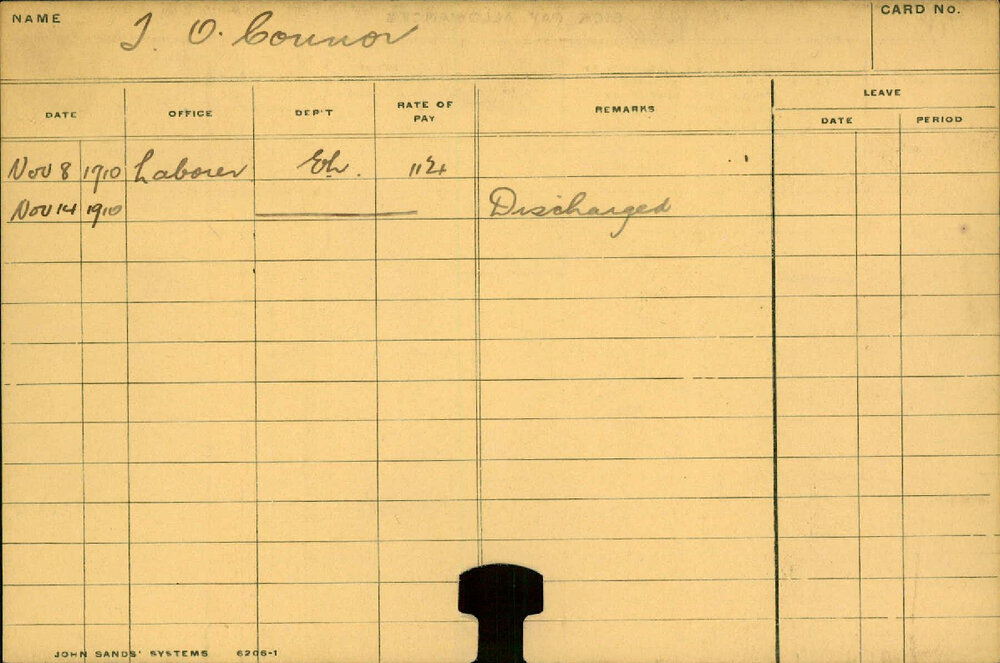 NAME T. O. Connor CARD No.
LEAVE
DATE OFFICE DEP'T RATE OF PAY REMARKS DATE PERIOD
Nov 8 1910 Laborer
Nov 14 1910 Discharged
JOHN SANDS' SYSTEMS 6206-1